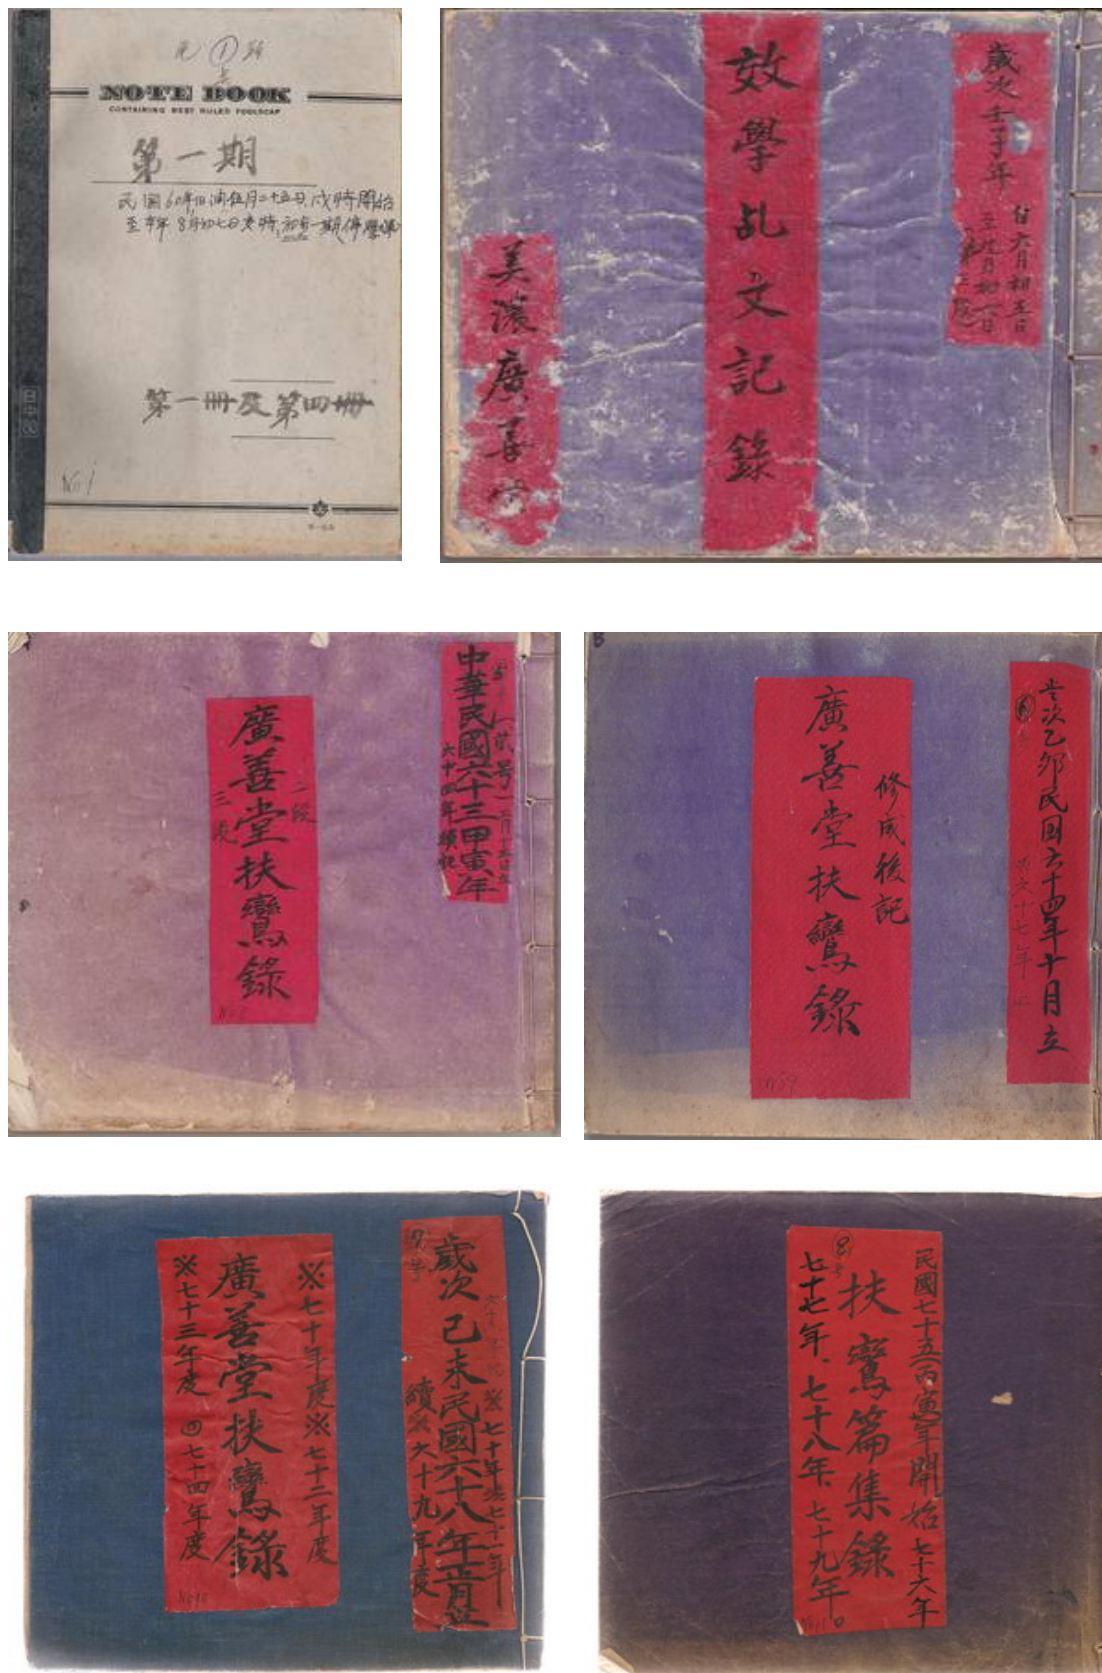 1
NOTE BOOK
CONTAINING BEST RULED FOOLSCAP
第一期
民國60年旧润伍月二十五日戌時開始
至本年8月初七日亥時
第一冊及第四冊
No 1
歲次壬子年
自六月初五日
至九月初一日
效學乩文記錄
美濃廣善堂
中華民國六十三甲寅年
六十四年續記
二段
廣善堂扶鸞錄
三度
歲次乙卯民國六十四年十月立
修成後記
廣善堂扶鸞錄
No 9
B
※七十年 七十一年
歲次己未民國六十八年正月立
續※六十九年度
7号
※七十年度※七十二年度
廣善堂扶鸞錄
※七十三年度 七十四年度
No 10
民國七十五(丙寅)年開始 七十六年
扶鸞篇集錄
8
七十七年、七十八年、七十九年
No 11